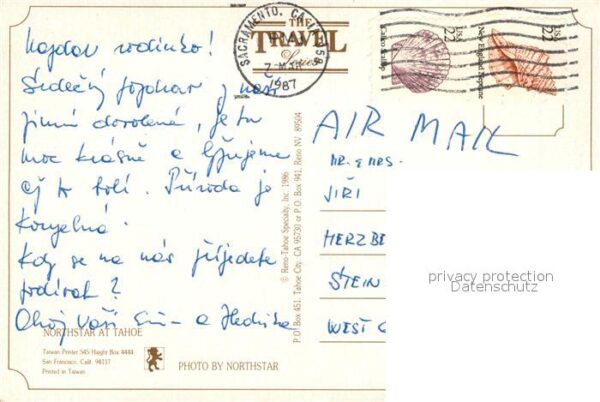 THE
TRAVEL
SACRAMENTO, CALIF 958
PM
1987
Calico Scallop
USA 22
New England Neptune
USA 22
rodinko!
Srdečný pozdrav z naší
zimní dovolené, je tu
moc krásně a lyžujeme
až to bolí. Příroda je
kouzelná.
Kdy se na nás přijedete
podívat?
Ahoj Vaši a Hedvika
AIR MAIL
MR. & MRS.
JIŘI
HERZBE
STEIN
WEST G
privacy protection
Datenschutz
© Reno-Tahoe Specialty, Inc. 1986
P.O Box 451, Tahoe City, CA 95730 or P.O. Box 941, Reno NV 89504
NORTHSTAR AT TAHOE
Taiwan Printer 545 Haight Box 4444
San Francisco, Calif. 94117
Printed in Taiwan
PHOTO BY NORTHSTAR